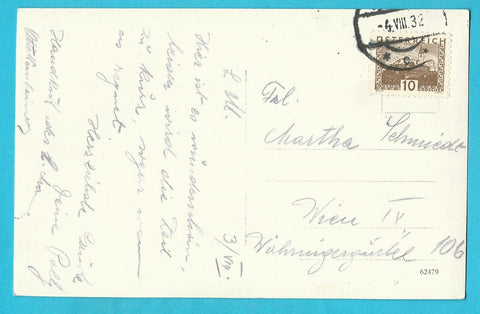 3/VIII.
L. M.
Hier ist es wunderschön,
leider wird die Zeit
zu kurz, wegen wenn
es regnet
Herzlichste Grüße
Deine Polly
Handkuß
-4.VIII.32
c
ÖSTERREICH
10
Frl.
Martha Schmiedt
Wien IX
Währingergürtel 106
62479